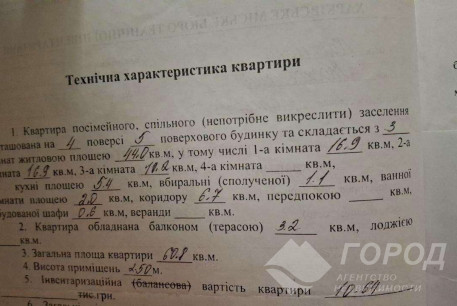 Технічна характеристика квартири
1. Квартира посімейного, спільного (непотрібне викреслити) заселення
ташована на 4 поверсі 5 поверхового будинку та складається з 3
нат житловою площею 44.0 кв.м, у тому числі 1-а кімната 16.9 кв.м, 2-а
ната 16.9 кв.м, 3-а кімната 10.2 кв.м, 4-а кімната кв.м,
кухні площею 5.4 кв.м, вбиральні (сполученої) 1.1 кв.м, ванної
мнати площею 2.0 кв.м, коридору 6.7 кв.м, передпокою кв.м,
будованої шафи 0.6 кв.м, веранди кв.м.
2. Квартира обладнана балконом (терасою) 3.2 кв.м, лоджією
кв.м.
3. Загальна площа квартири 60.8 кв.м.
4. Висота приміщень 2.50 м.
5. Інвентаризаційна (балансова) вартість квартири
тис.грн.
ГОРОД
АГЕНТСТВО
НЕДВИЖИМОСТИ